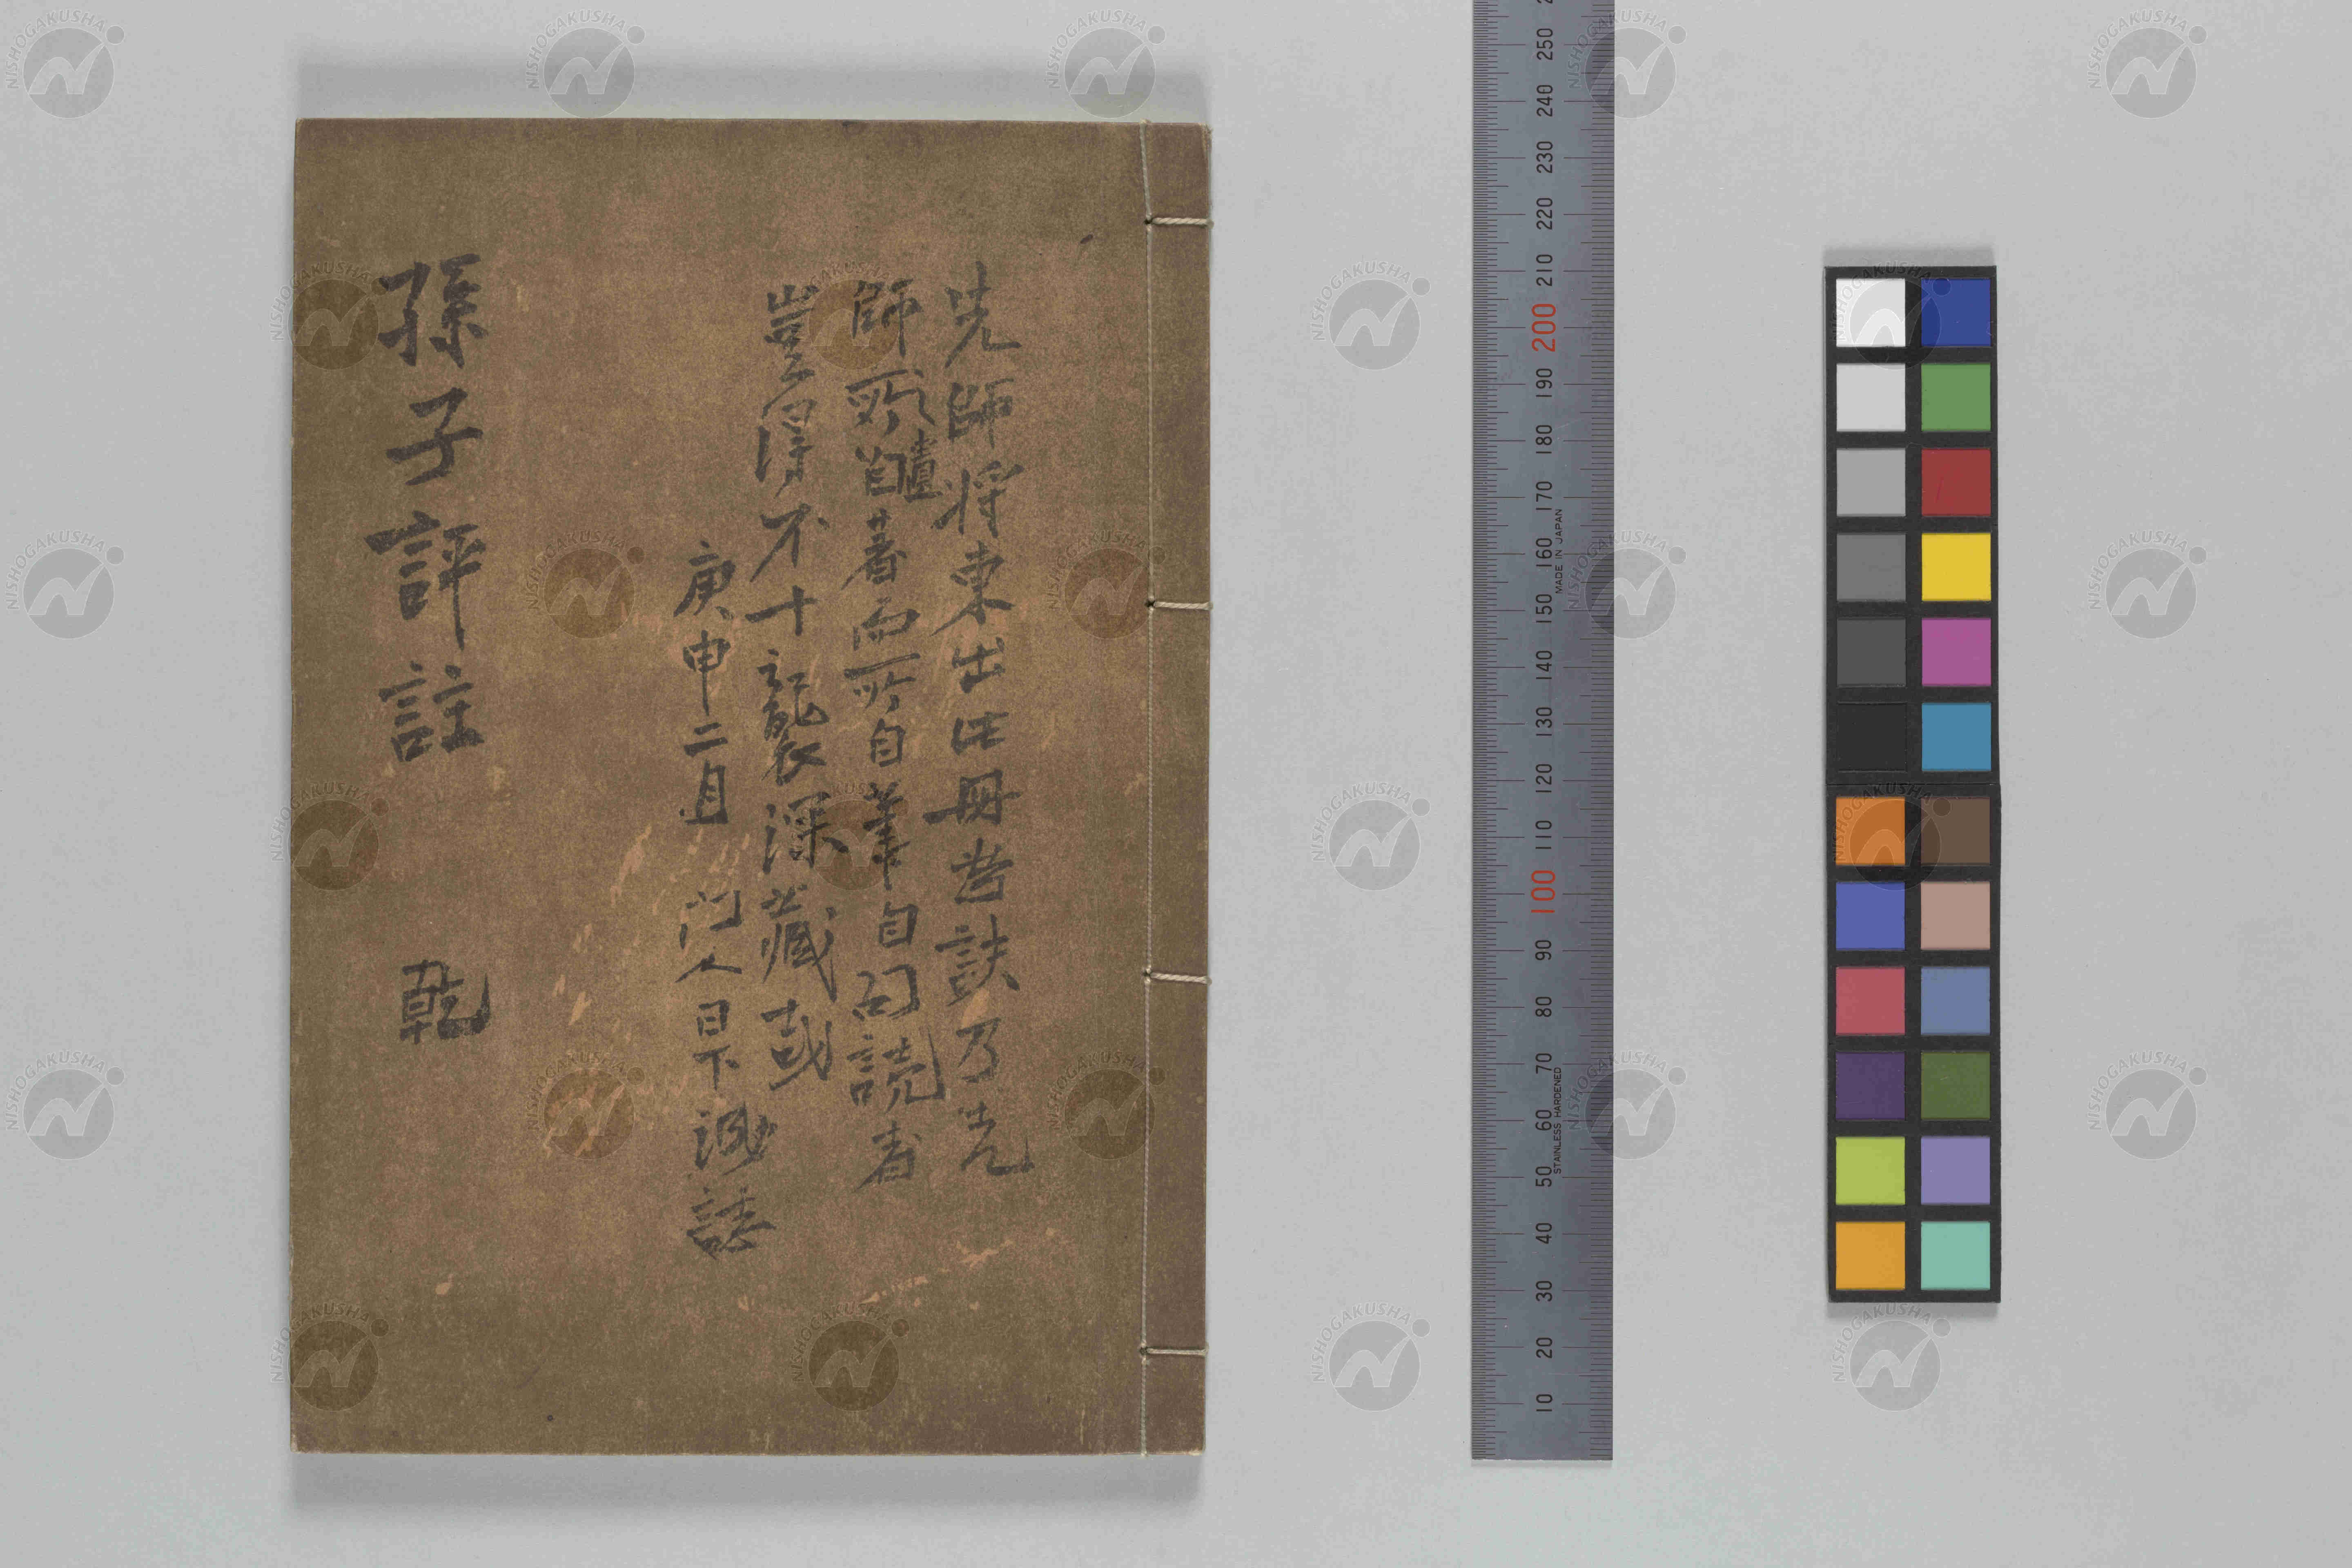 先師将東出此冊者訣乃先
師所自著而所自筆自句読者
豈得不十襲深蔵哉
庚申二月 門人日下誌
孫子評註 乾
250
240
230
220
210
200
190
180
170
160
150
140
130
120
110
100
90
80
70
60
50
40
30
20
10
MADE IN JAPAN
STAINLESS HARDENED
NISHOGAKUSHA